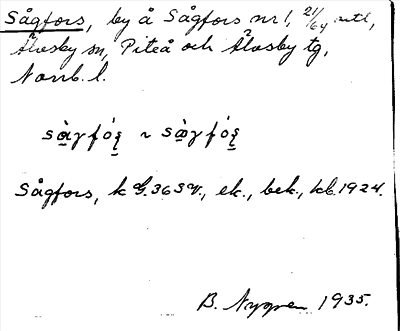 Sågfors, by å Sågfors nr 1, 21/64 mtl,
Älvsby sn, Piteå och Älvsby tg,
Norrb. l.
Sågfors, k G. 3659., ek., bek., kb. 1924.
B. Nygren 1935.